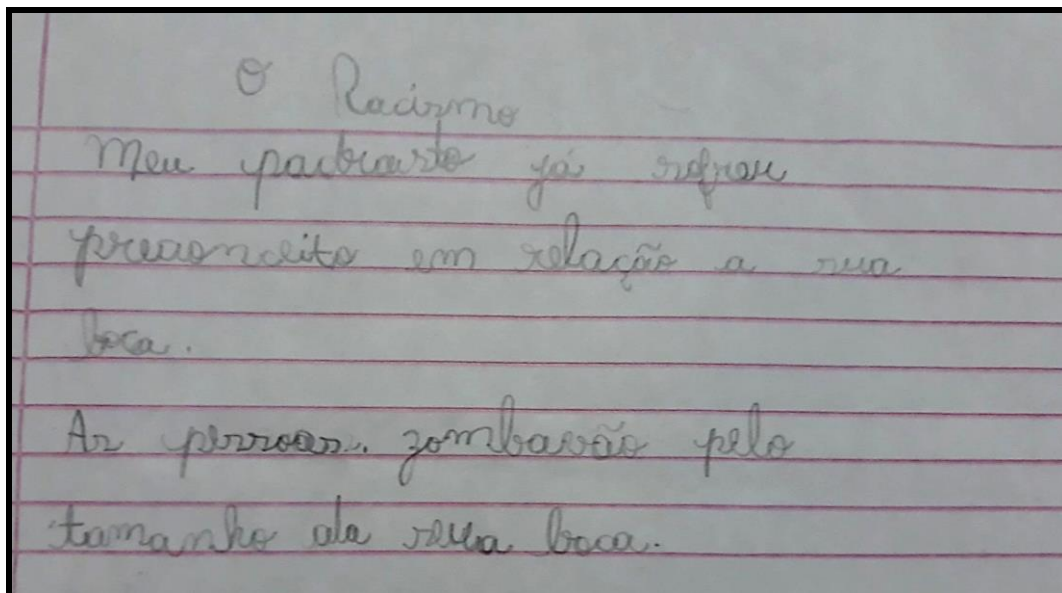 O Racizmo
Meu padrasto já sofreu
preconceito em relação a sua
boca.
As pessoas. zombavão pelo
tamanho da sua boca.